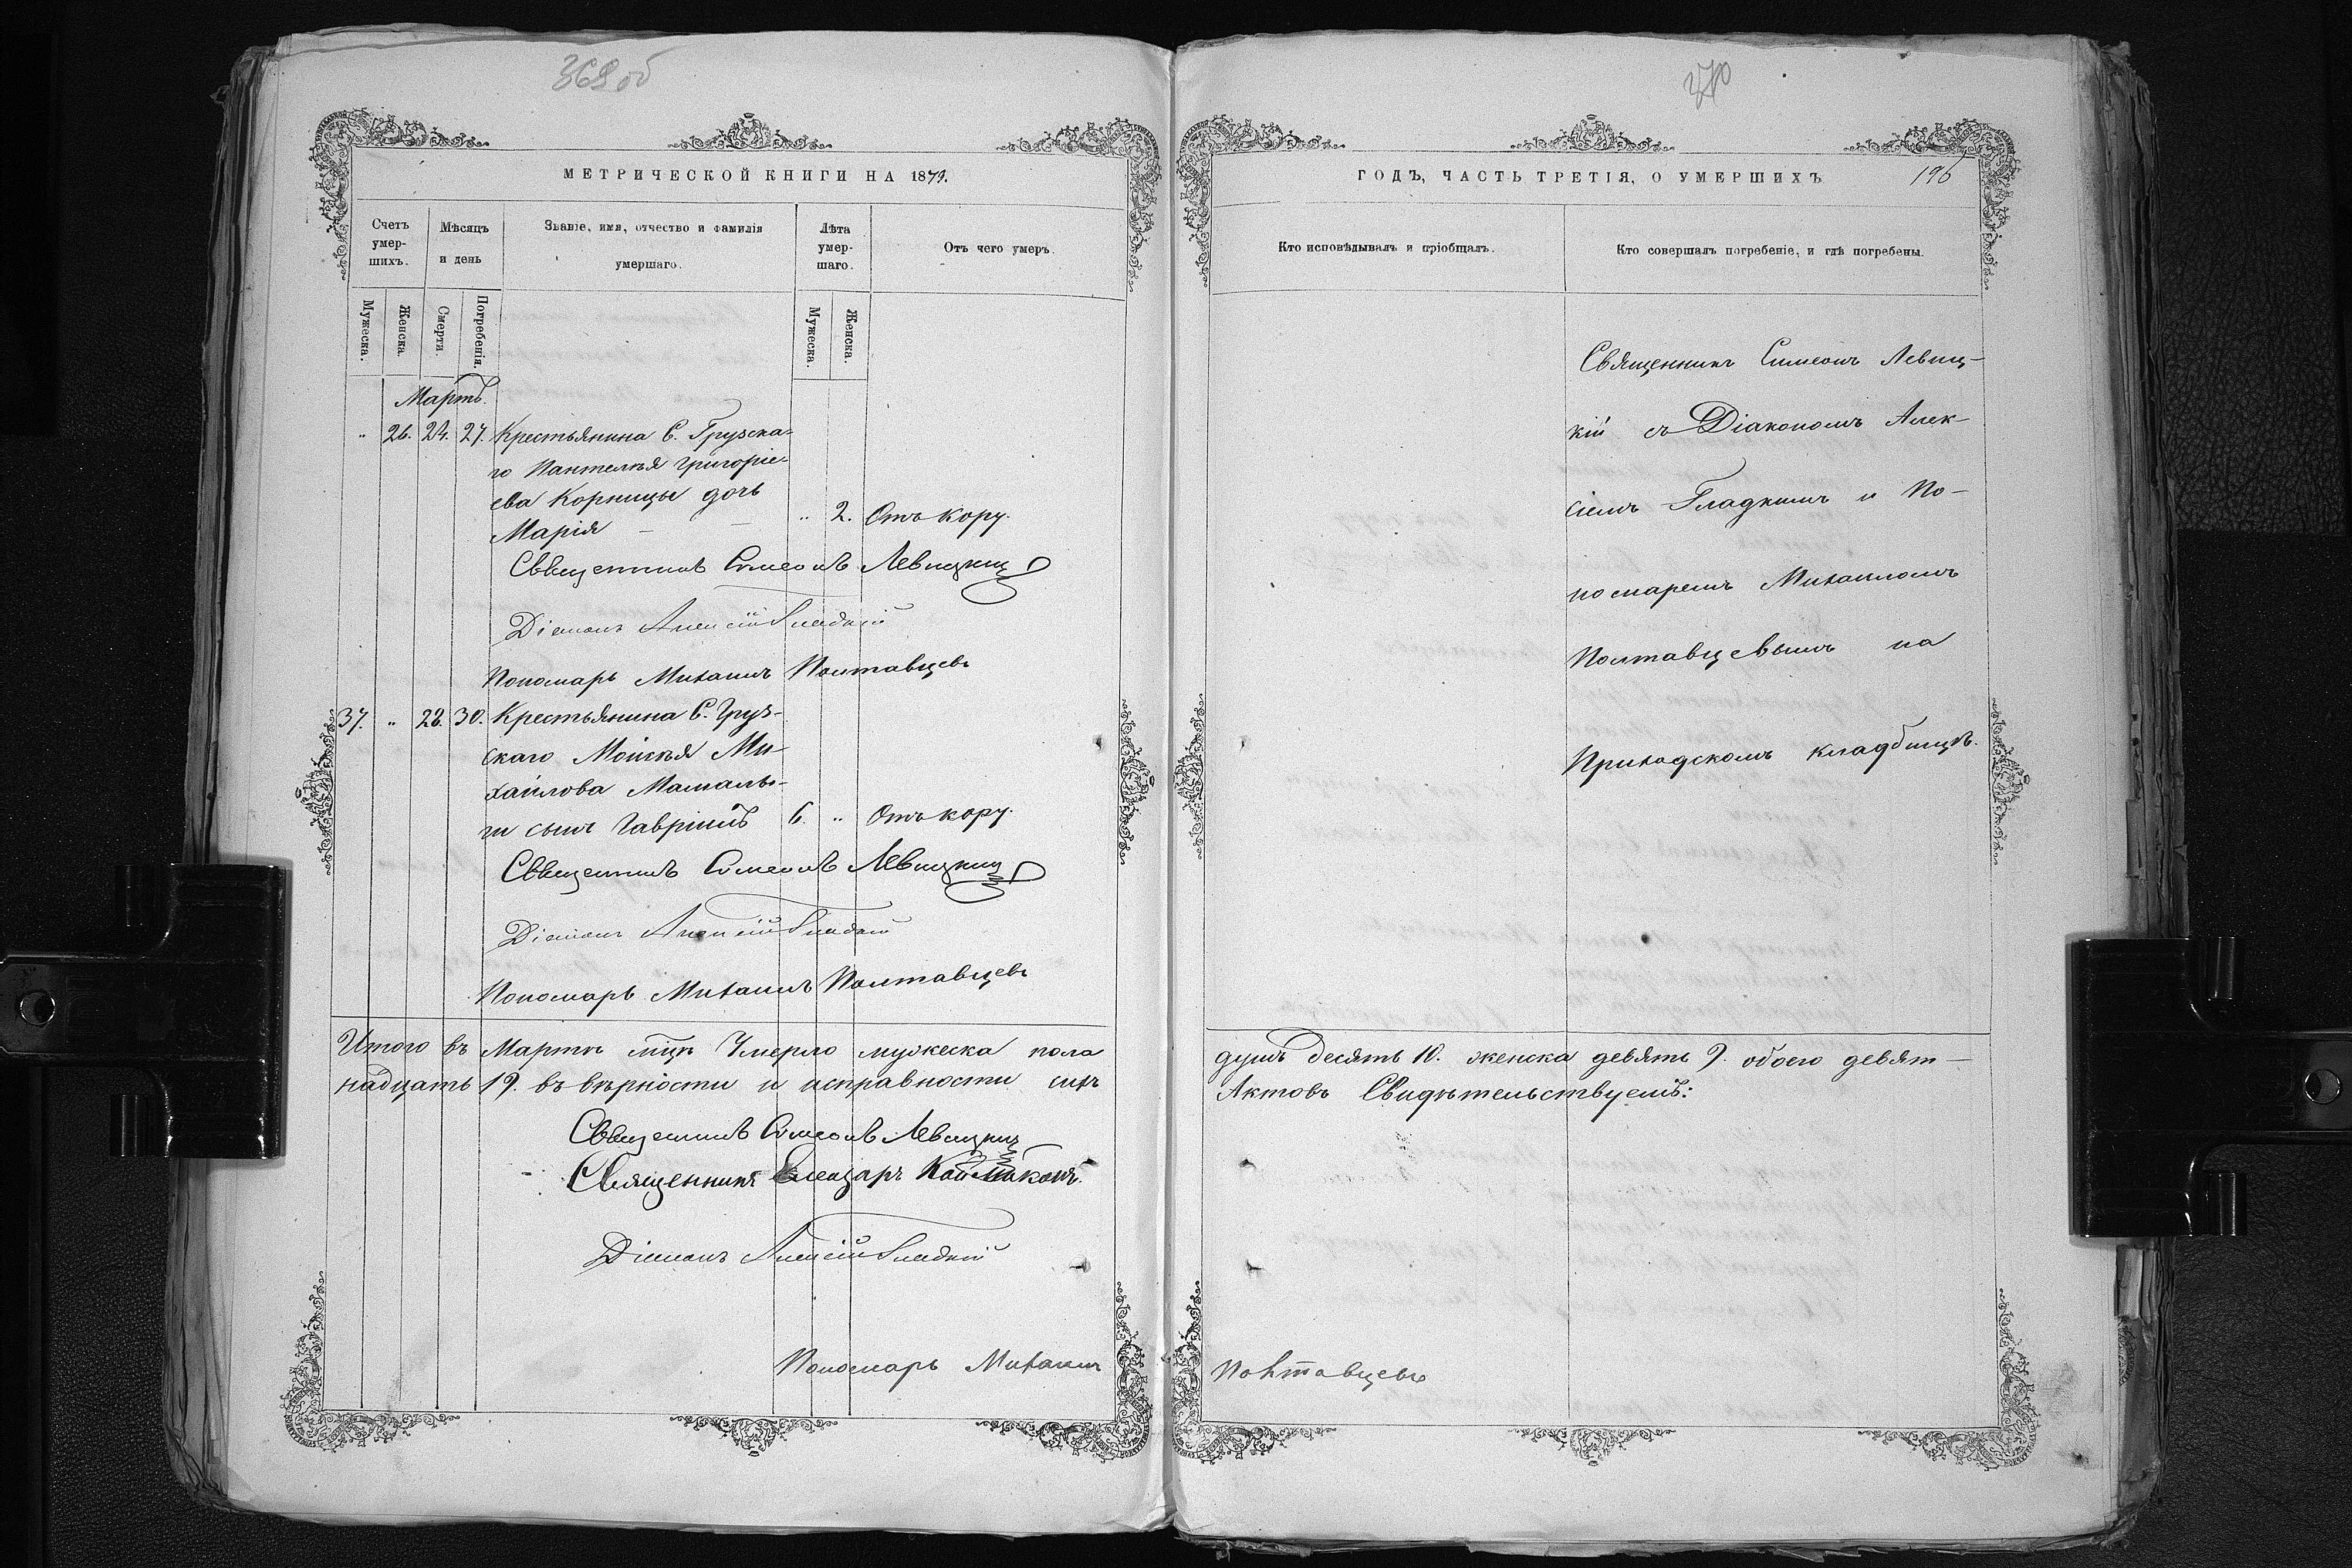 369 об
370
МЕТРИЧЕСКОЙ КНИГИ НА 1879.
Счетъ умер-шихъ.
Мѣсяцъ и день
Званіе, имя, отчество и фамилія умершаго.
Лѣта умер-шаго.
Отъ чего умеръ.
Мужеска.
Женска.
Смерти.
Погребенія.
Мужеска.
Женска.
Мартъ.
" 26. 24. 27. Крестьянина С. Грузска-
го Пантелѣя Григоріе-
ева Корницы дочь
Марія — — " 2. Отъ кору.
Священникъ Симеонъ Левицкій
Діаконъ Алексій Гладкій
Пономарь Михаилъ Полтавцевъ
37. " 28. 30. Крестьянина С. Груз-
скаго Моисѣя Ми-
хайлова
ги сынъ Гавріилъ 6. " Отъ кору.
Священникъ Симеонъ Левицкій
Діаконъ Алексій Гладкій
Пономарь Михаилъ Полтавцевъ
Итого въ Мартѣ мцѣ Умерло мужеска пола
надцать 19. въ вѣрности и исправности сихъ
Священникъ Симеонъ Левицкій
Священникъ Елеазаръ
Діаконъ Алексій Гладкій
Пономарь Михаилъ
ГОДЪ, ЧАСТЬ ТРЕТІЯ, О УМЕРШИХЪ 196
Кто исповѣдывалъ и пріобщалъ.
Кто совершалъ погребеніе, и гдѣ погребены.
Священникъ Симеонъ Левиц-
кій съ Діакономъ Алек-
сіемъ Гладкимъ и По-
номаремъ Михаиломъ
Полтавцевымъ на
Приходскомъ кладбищѣ.
душъ десять 10. женска девять 9. обоего девят-
Актовъ Свидѣтельствуемъ:
Полтавцевъ